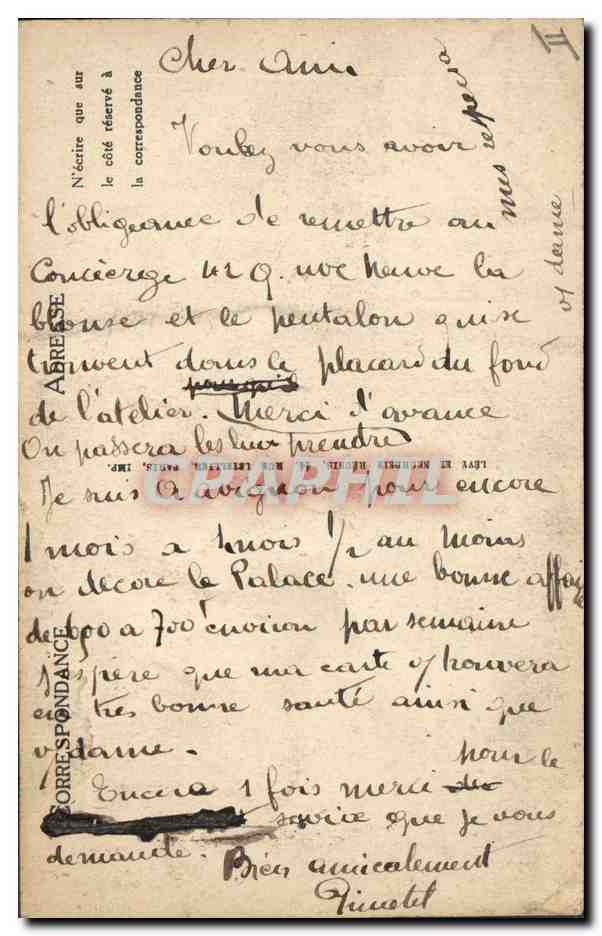 Cher Ami
Voulez vous avoir
l'obligeance de remettre au
Concierge 42 Q. rue Neuve la
blouse et le pentalon qui se
trouvent dans le placard du fond
de l'atelier. Merci d'avance
On passera les leur prendre
Je suis a avignon pour encore
1 mois a 1 mois 1/2 au moins
on decore le Palace. une bonne affaire
de 650 a 700 f environ par semaine
j'espère que ma carte v/ trouvera
en tres bonne santé ainsi que
v/ dame.
Encore 1 fois merci pour le
service que je vous
demande.
Bien amicalement
mes respects
v/ dame
II
N'écrire que sur
le côté réservé à
la correspondance
ADRESSE
CORRESPONDANCE
LÉVY ET NEURDEIN RÉUNIS, 44, RUE LETELLIER, PARIS, IMP.
CPAPHIL